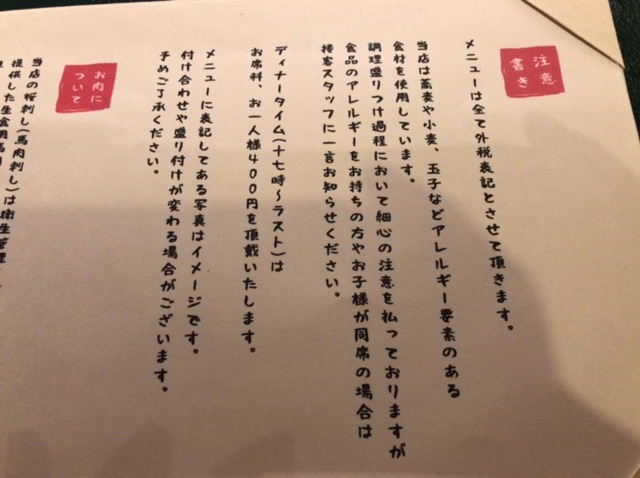 注意
書き
メニューは全て外税表記とさせて頂きます。
当店は蕎麦や小麦、玉子などアレルギー要素のある
食材を使用しています。
調理盛りつけ過程において細心の注意を払っておりますが
食品のアレルギーをお持ちの方やお子様が同席の場合は
接客スタッフに一言お知らせください。
ディナータイム(十七時〜ラスト)は
お席料、お一人様400円を頂戴いたします。
メニューに表記してある写真はイメージです。
付け合わせや盛り付けが変わる場合がございます。
予めご了承ください。
お肉に
ついて
当店の桜刺し(馬肉刺し)は衛生管理
提供した生食用馬